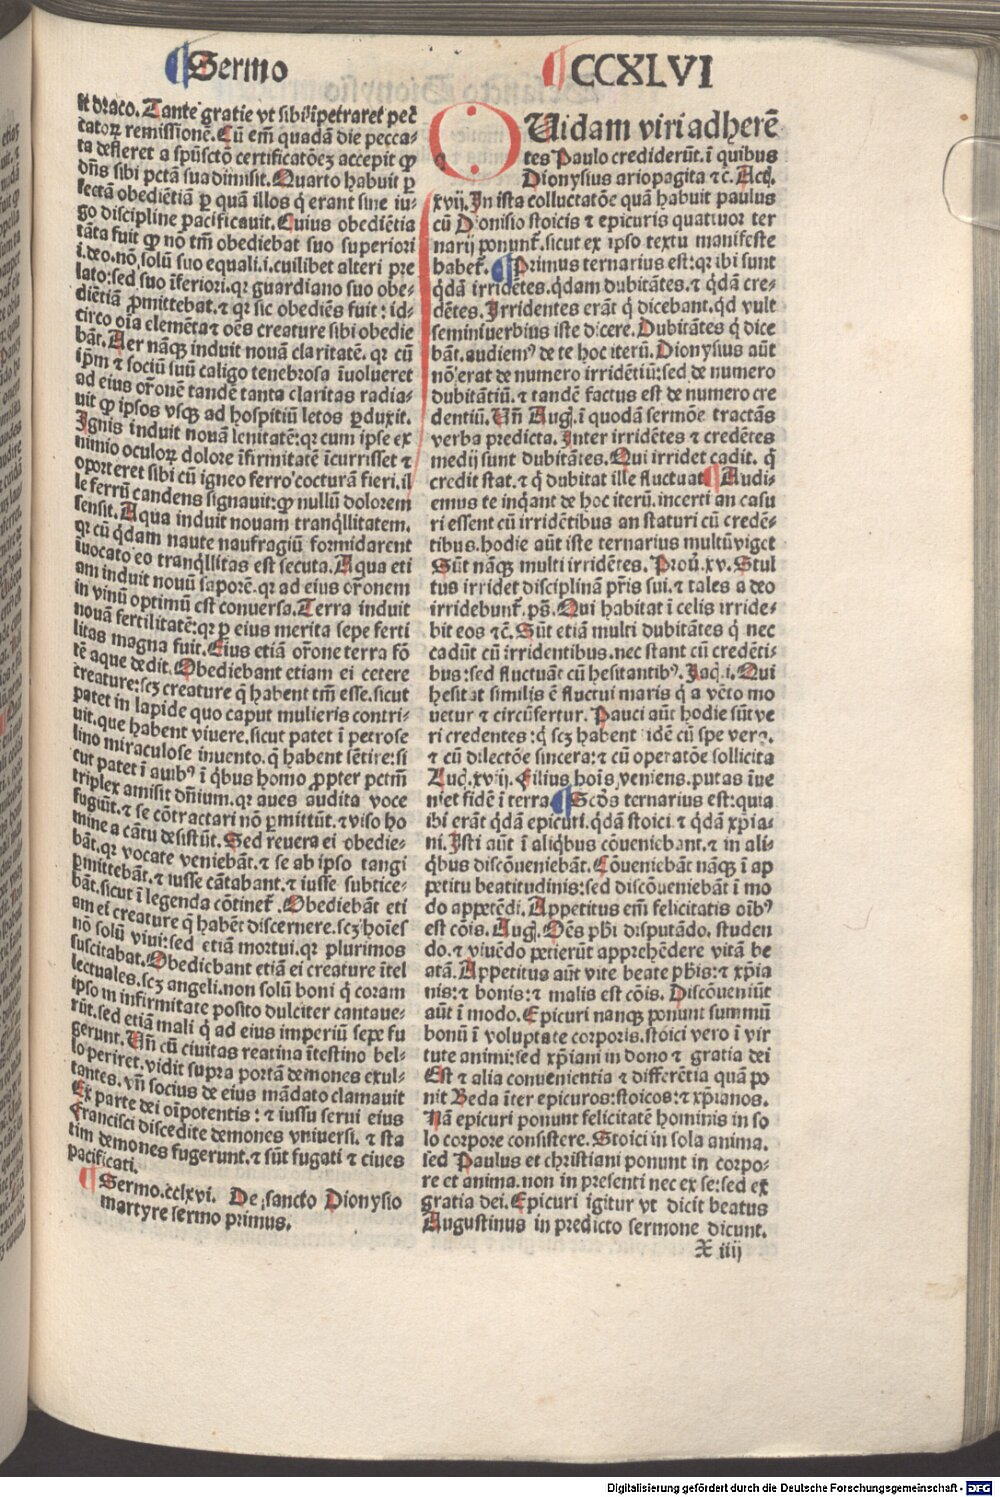 ¶ Sermo
¶ CCXLVI
it draco. Tante gratie vt sibi īpetraret pec̄
catoꝝ remissionē. Cū em̄ quadā die pecca-
ta defleret a spūsctō certificatōeꝫ accepit ꝙ
dn̄s sibi pctā sua dimisit. Quarto habuit ꝑ
fectā obediētiā ꝑ quā illos q̄ erant sine iu-
go discipline pacificauit. Cuius obediētia
tāta fuit ꝙ nō tm̄ obediebat suo superiori
i. deo. nō solū suo equali. i. cuilibet alteri pre
lato: sed suo īferiori. qꝛ guardiano suo obe-
diētiā ꝓmittebat. ⁊ qꝛ sic obediēs fuit: id-
circo oīa elemēta ⁊ oēs creature sibi obedie
bāt. Aer nāqꝫ induit nouā claritatē. qꝛ cū
ip̄m ⁊ sociū suū caligo tenebrosa īuolueret
ad eius or̄onē tandē tanta claritas radia-
uit ꝙ ipsos vsqꝫ ad hospitiū letos ꝑduxit.
Ignis induit nouā lenitatē: qꝛ cum ipse ex
nimio oculoꝝ dolore īfirmitatē īcurrisset ⁊
oporteret sibi cū igneo ferro cocturā fieri. il
le ferrū candens signauit: ꝙ nullū dolorem
sensit. Aqua induit nouam tranq̄llitatem.
qꝛ cū q̄dam naute naufragiū formidarent
īuocato eo tranq̄llitas est secuta. Aqua eti
am induit nouū saporē. qꝛ ad eius or̄onem
in vinū optimū est conuersa. Terra induit
nouā fertilitatē: qꝛ ꝑ eius merita sepe ferti
litas magna fuit. Eius etiā or̄one terra fō
tē aque dedit. Obediebant etiam ei cetere
creature: scꝫ creature q̄ habent tm̄ esse. sicut
patet in lapide quo caput mulieris contri-
uit. que habent viuere. sicut patet ī petrose
lino miraculose inuento. q̄ habent sētire: si
cut patet ī auibꝰ ī q̄bus homo ꝓpter pctm̄
triplex amisit dn̄ium. qꝛ aues audita voce
fugiūt. ⁊ se cōtractari nō ꝑmittūt. ⁊ viso ho
mine a cātu desistūt. Sed reuera ei obedie-
bāt. qꝛ vocate veniebāt. ⁊ se ab ipso tangi
ꝑmittebāt. ⁊ iusse cātabant. ⁊ iusse subtice-
bāt. sicut ī legenda cōtinet̄. Obediebāt eti
am ei creature q̄ habēt discernere. scꝫ hoīes
nō solū viui: sed etiā mortui. qꝛ plurimos
suscitabat. Obediebant etiā ei creature ītel
lectuales. scꝫ angeli. non solū boni q̄ coram
ipso in infirmitate posito dulciter cantaue-
rūt. sed etiā mali q̄ ad eius imperiū sepe fu
gerunt. Vn̄ cū ciuitas reatina ītestino bel-
lo periret. vidit supra portā demones exul-
tantes. vn̄ socius de eius mādato clamauit
Ex parte dei oīpotentis: ⁊ iussu serui eius
Francisci discedite demones vniuersi. ⁊ sta
tim demones fugerunt. ⁊ sūt fugati ⁊ ciues
pacificati.
¶ Sermo. cclxvi. De sancto Dionysio
martyre sermo primus.
QVidam viri adherē
tes Paulo crediderūt. ī quibus
Dionysius ariopagita ⁊ c̄. Actꝭ.
xvij. In ista colluctatōe quā habuit paulus
cū Dionisio stoicis ⁊ epicuris quatuor ter
narij ponunt̄. sicut ex ipso textu manifeste
habet̄. ¶ Primus ternarius est: qꝛ ibi sunt
q̄dā irridētes. q̄dam dubitātes. ⁊ q̄dā cre-
dētes. Irridentes erāt q̄ dicebant. qd vult
seminiuerbius iste dicere. Dubitātes q̄ dice
bāt. audiemꝰ de te hoc iterū. Dionysius aūt
nō erat de numero irridētiū: sed de numero
dubitātiū. ⁊ tandē factus est de numero cre
dentiū. Vn̄ Augꝭ. ī quodā sermōe tractās
verba predicta. Inter irridētes ⁊ credētes
medij sunt dubitātes. Qui irridet cadit. q̄
credit stat. ⁊ q̄ dubitat ille fluctuat ¶ Audi-
emus te inq̄ant de hoc iterū. incerti an casu
ri essent cū irridētibus an staturi cū credē-
tibus. hodie aūt iste ternarius multū viget
Sūt nāqꝫ multi irridētes. Prou̓. xv. Stul
tus irridet disciplinā pr̄is sui. ⁊ tales a deo
irridebunt̄. ps̄. Qui habitat ī celis irride-
bit eos ⁊c̄. Sūt etiā multi dubitātes q̄ nec
cadūt cū irridentibus. nec stant cū credēti-
bus: sed fluctuāt cū hesitantibꝰ. Jacꝭ. i. Qui
hesitat similis ē fluctui maris q̄ a vēto mo
uetur ⁊ circūfertur. Pauci aūt hodie sūt ve
ri credentes: q̄ scꝫ habent idē cū spe vera.
⁊ cū dilectōe sincera: ⁊ cū operatōe sollicita
Luc̄. xviij. Filius hoīs veniens. putas īue
niet fidē ī terra ¶ Scd̄s ternarius est: quia
ibi erāt q̄dā epicuri. q̄dā stoici ⁊ q̄dā xp̄ia-
ni. Isti aūt ī aliq̄bus cōueniebant. ⁊ in ali-
q̄bus discōueniebāt. Cōueniebāt nāqꝫ ī ap
petitu beatitudinis: sed discōueniebāt ī mo
do appetēdi. Appetitus em̄ felicitatis oībꝰ
est cōis. Augꝭ. Oēs ph̄i disputādo. studen
do. ⁊ viuēdo petierūt apprehēdere vitā be
atā. Appetitus aūt vite beate ph̄is: ⁊ xp̄ia
nis: ⁊ bonis: ⁊ malis est cōis. Discōueniūt
aūt ī modo. Epicuri nanqꝫ ponunt summū
bonū ī voluptate corporis. stoici vero ī vir
tute animi: sed xp̄iani in dono ⁊ gratia dei
Est ⁊ alia conuenientia ⁊ differētia quā po
nit Beda īter epicuros: stoicos: ⁊ xp̄ianos.
Nā epicuri ponunt felicitatē hominis in so
lo corpore consistere. Stoici in sola anima.
sed Paulus et christiani ponunt in corpo-
re et anima. non in presenti nec ex se: sed ex
gratia dei. Epicuri igitur vt dicit beatus
Augustinus in predicto sermone dicunt.
X iiij
Digitalisierung gefördert durch die Deutsche Forschungsgemeinschaft - DFG